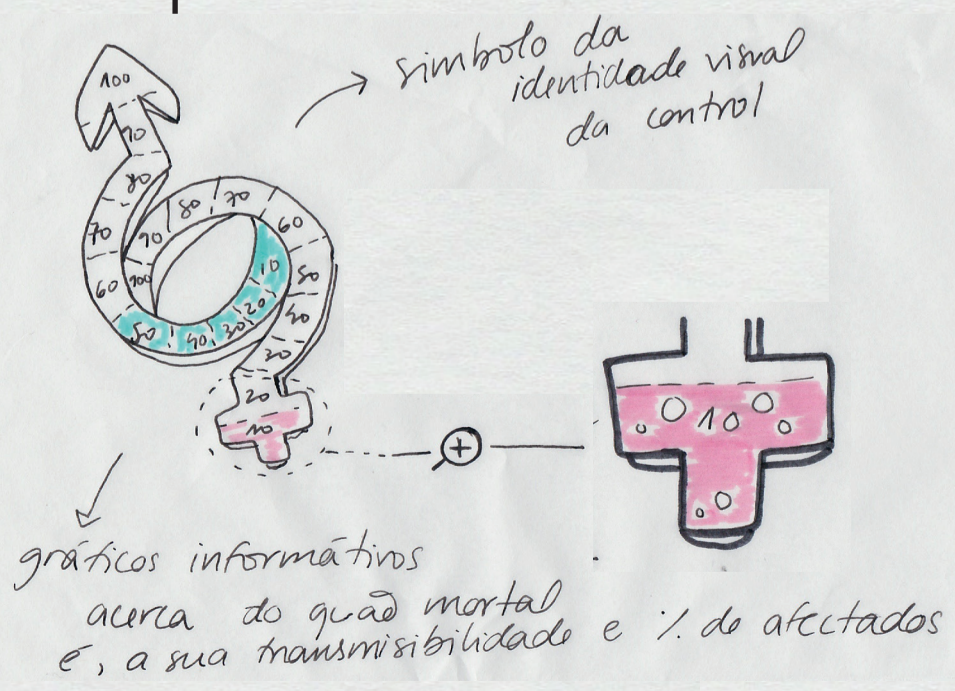 simbolo da
identidade visual
da control
100
90
80
70
60
50
40
30
20
10
100
90
80
70
60
50
40
30
20
10
10
gráficos informátivos
acerca do quaõ mortal
é, a sua transmisibilidade e % de afectados